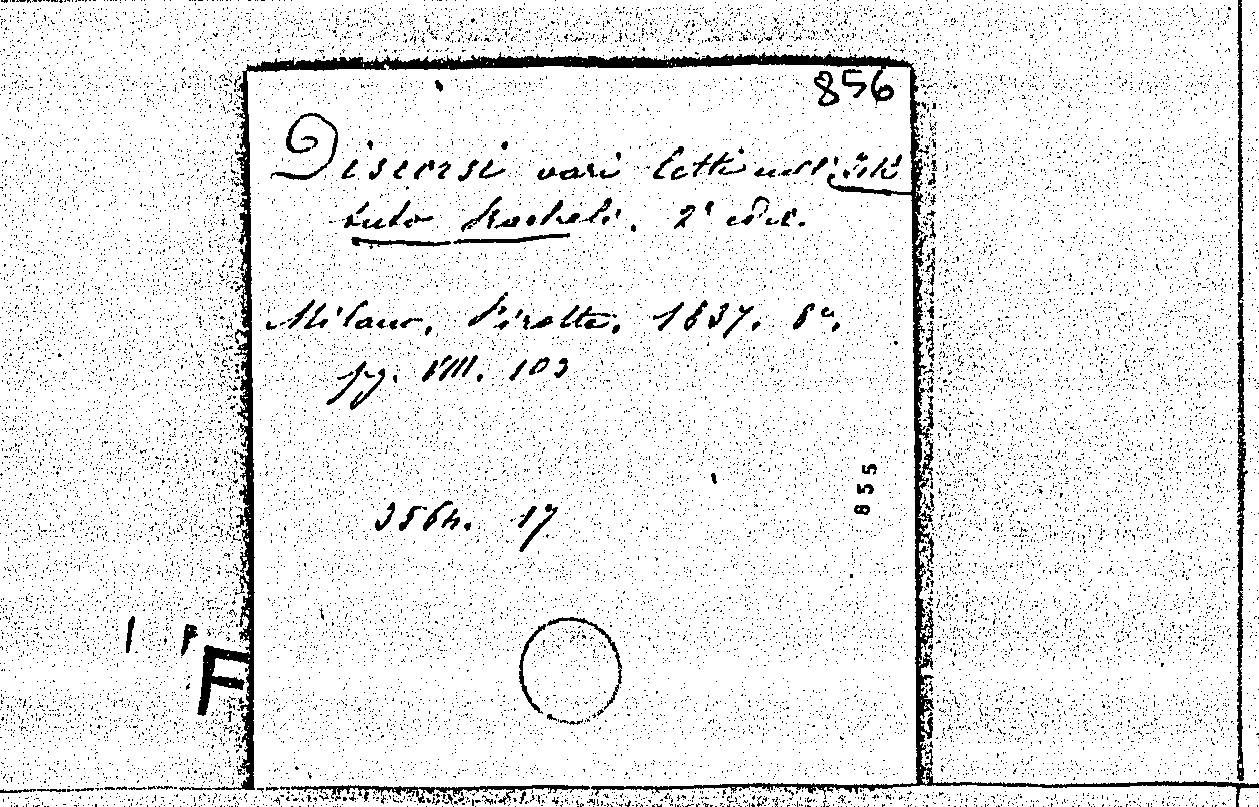 856
Discorsi vari letti nell'Isti
tuto Racheli. 2ª ediz.
Milano, Pirotta, 1837. 8°.
pg. VIII. 103
3564. 17
855
F